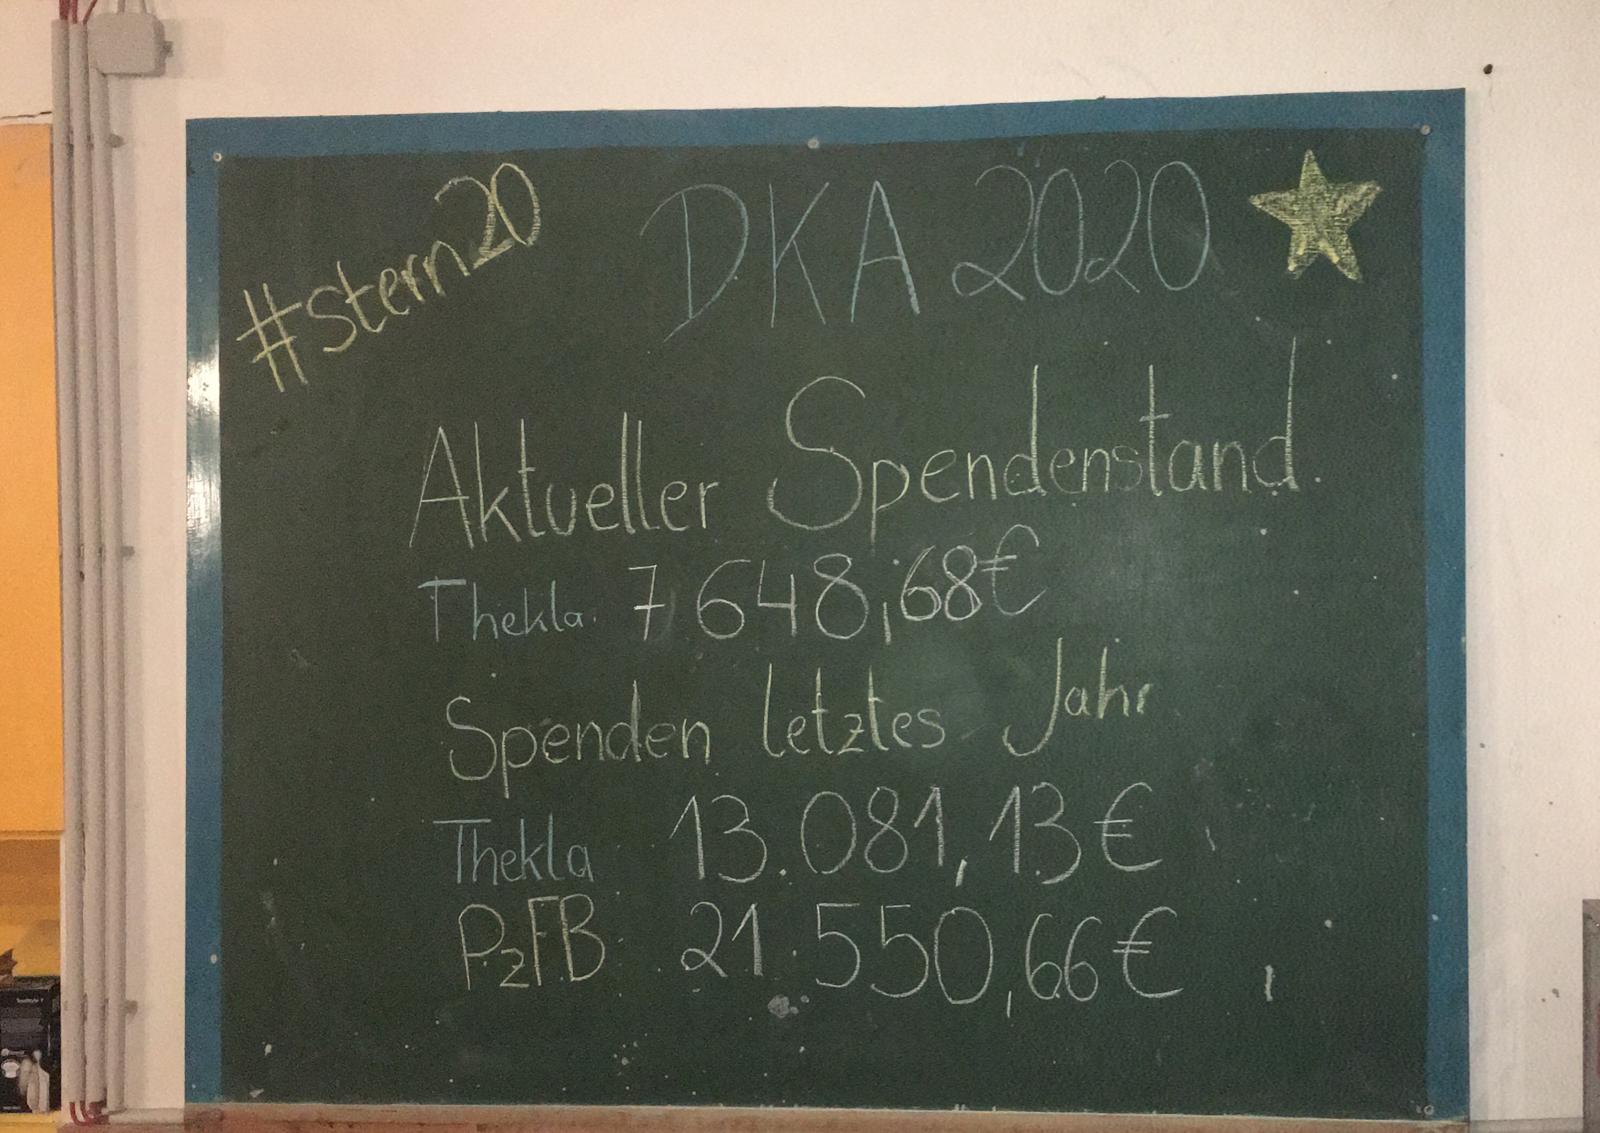 #stern20
DKA 2020
Aktueller Spendenstand.
Thekla. 7 648,68€
Spenden letztes Jahr
Thekla 13.081,13€
PzFB 21.550,66€